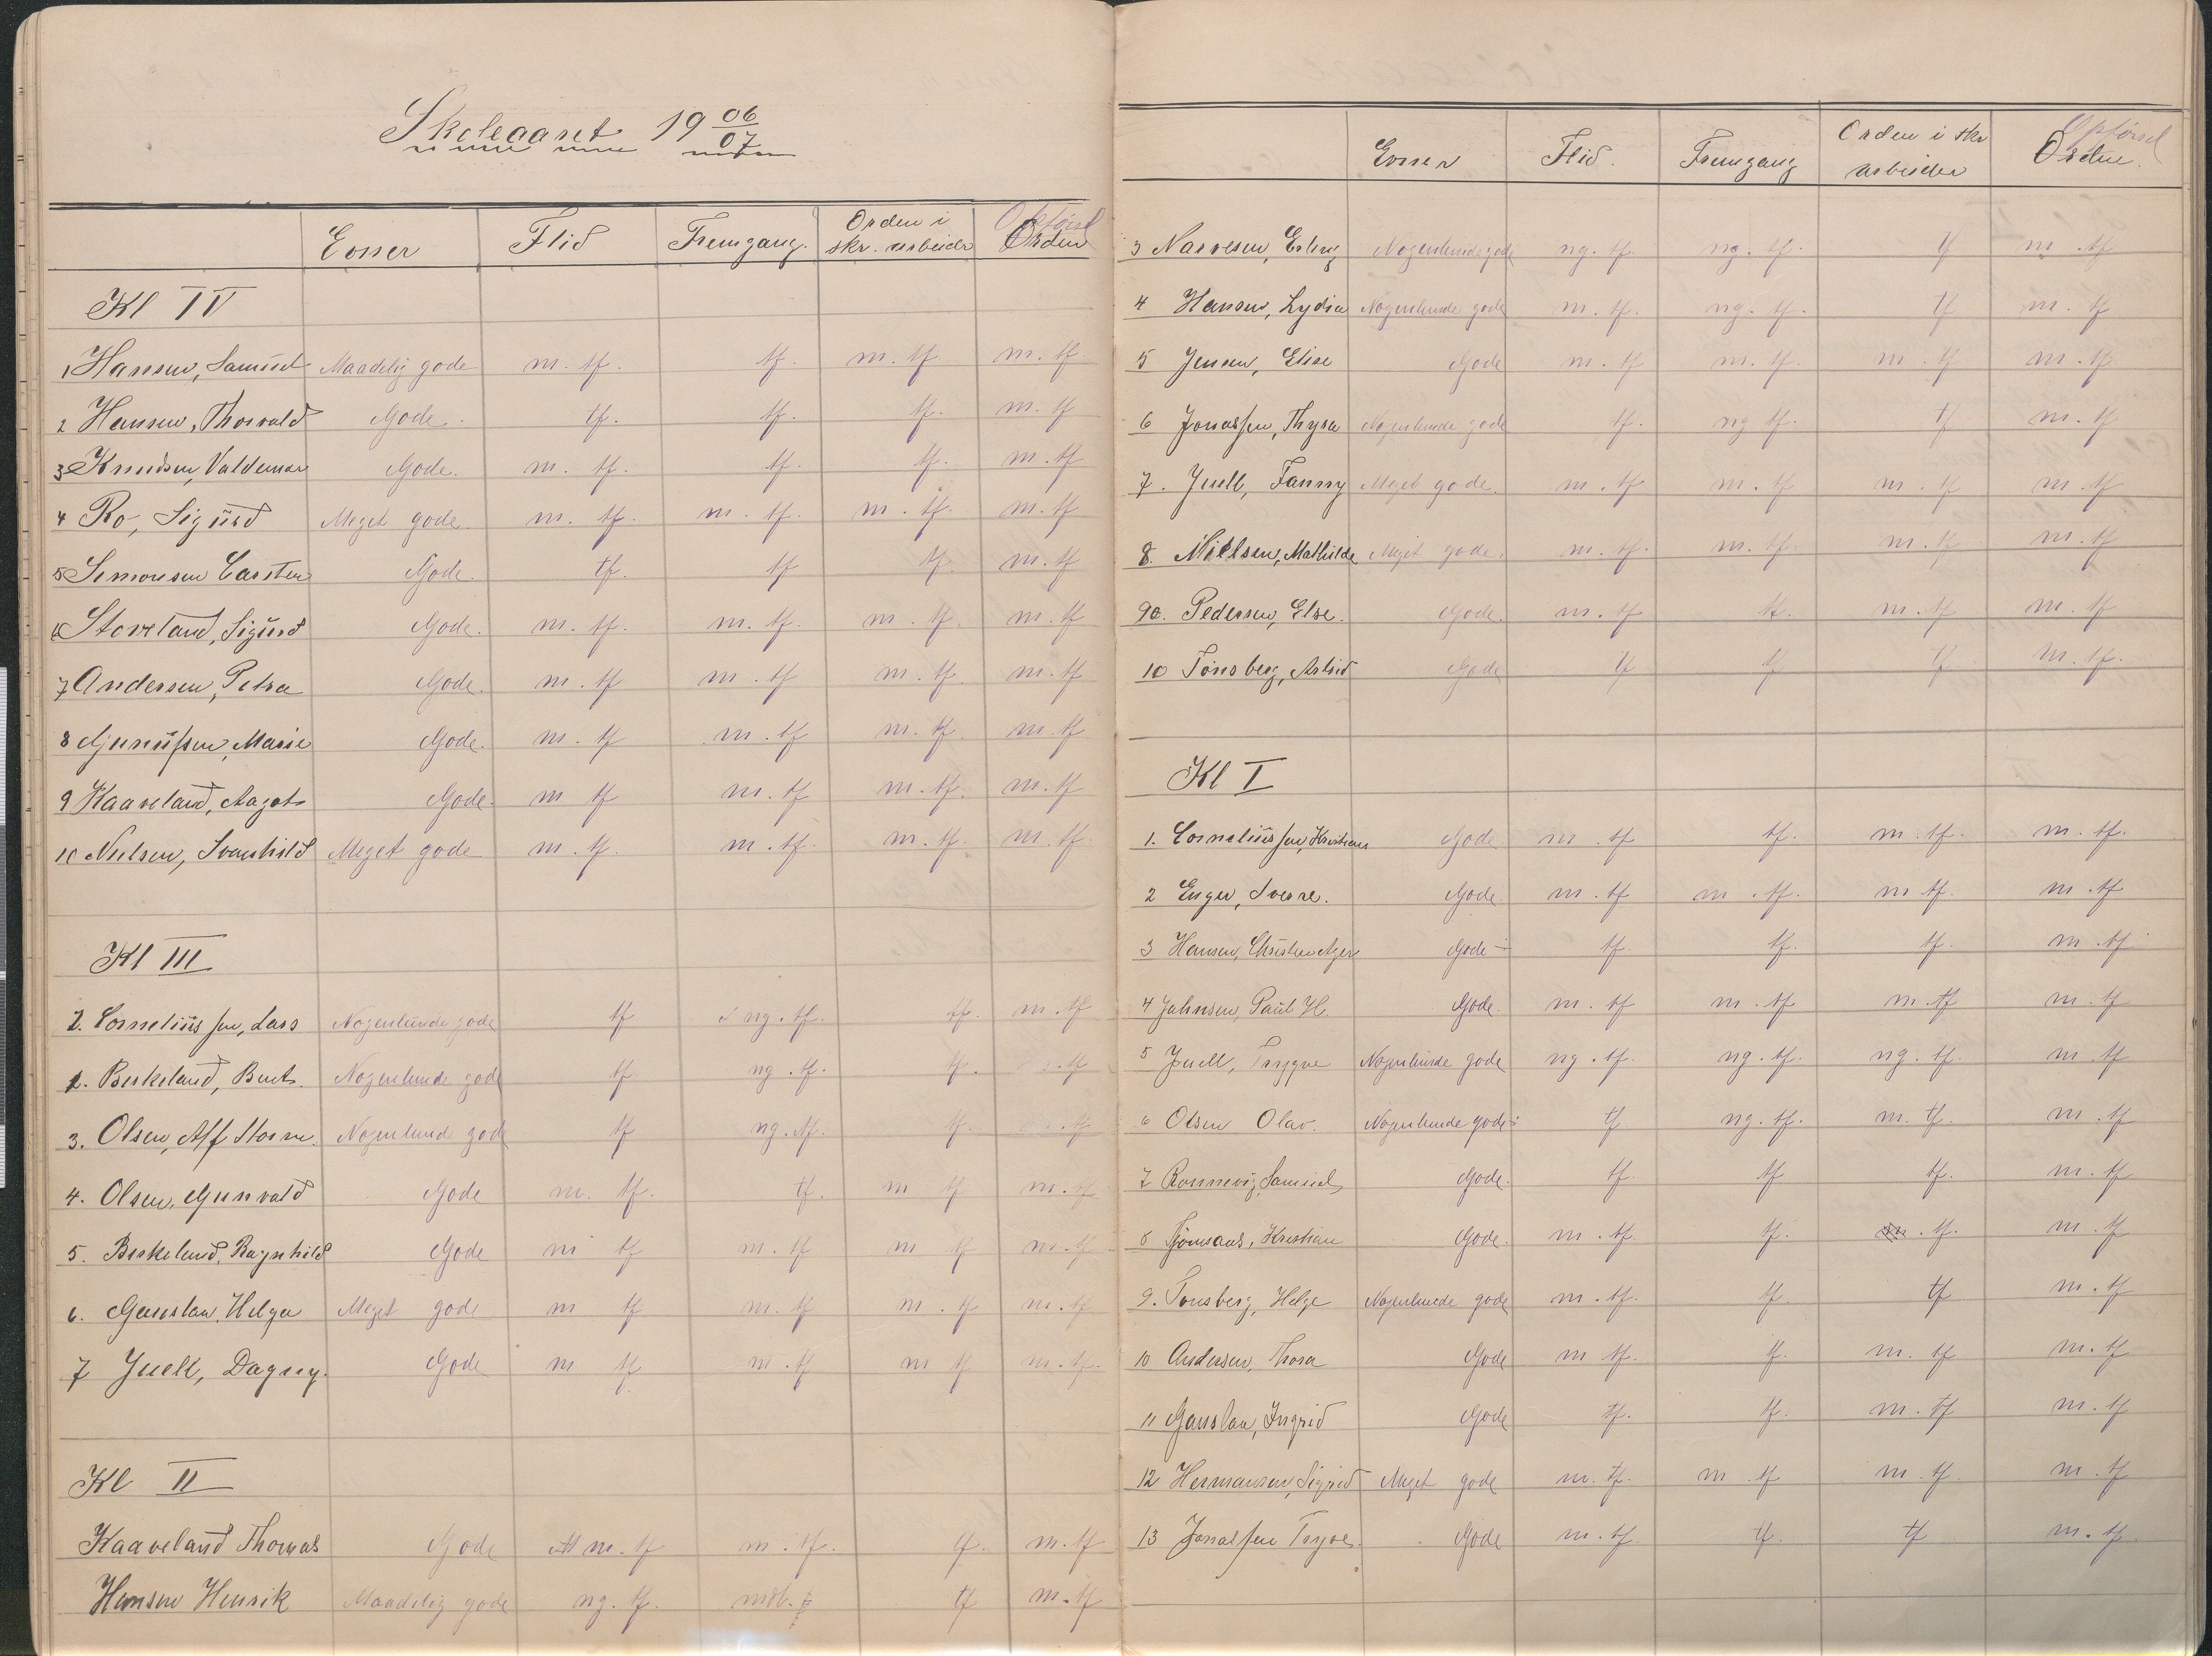 Skoleaaret 19 06/07
Evner Flid Fremgang. Orden i skr. arbeider Opførsel Orden
Kl IV
1 Hansen, Samuel Maadelig gode m. tf. tf. m. tf m. tf.
2 Hansen, Thorvald Gode. tf. tf. tf. m. tf
3 Knudsen, Valdemar Gode. m. tf. tf. tf. m. tf
4 Ro, Sigurd Meget gode. m. tf. m. tf. m. tf. m. tf
5 Simonsen Carsten Gode. tf. tf tf. m. tf
6 Stoveland, Sigurd Gode. m. tf. m. tf. m. tf. m. tf
7 Andersen, Petra Gode. m. tf m. tf m. tf m. tf
8 Gunnufsen, Marie Gode. m. tf m. tf m. tf. m. tf
9 Kaaveland, Aagot Gode. m tf m. tf m. tf. m. tf
10 Nielsen, Svanhild Meget gode m. tf. m. tf. m. tf. m. tf.
Kl III
2. Corneliussen, Lars Nogenlunde gode tf ng. tf. tf. m. tf
1. Birkeland, Bent. Nogenlunde gode tf ng. tf. tf. m. tf
3. Olsen, Alf Nogenlunde gode tf ng. tf. tf. m. tf
4. Olsen, Gunvald Gode m. tf. tf. m tf m. tf
5. Birkeland, Ragnhild Gode m tf m. tf m tf m. tf
6. Gauslaa, Helga Meget gode m tf m. tf m. tf m. tf
7 Juell, Dagny. Gode m tf m. tf m tf m. tf.
Kl II
Kaaveland Thomas Gode m. tf m. tf. tf. m. tf
Hansen Henrik Maadelig gode ng. tf. mdl. tf m. tf
Evner Flid. Fremgang Orden i skr arbeider Opførsel Orden.
3 Narvesen, Erling Nogenlunde gode ng. tf. ng. tf. tf m. tf
4 Hansen, Lydia Nogenlunde gode m. tf. ng. tf. tf m. tf
5 Jensen, Elise Gode m. tf m. tf. m. tf m. tf.
6 Jonassen, Thyra Nogenlunde gode tf. ng tf. tf m. tf
7. Juell, Fanny Meget gode. m. tf m. tf m. tf m. tf
8. Nielsen, Mathilde Meget gode. m. tf. m. tf. m. tf m. tf
9. Pedersen, Else. Gode. m. tf tf. m. tf m. tf
10 Tönsberg, Astrid Gode tf tf tf m. tf.
Kl I
1. Corneliussen, Kristian Gode m. tf tf. m. tf. m. tf.
2 Enger, Sverre. Gode. m. tf m. tf. m tf. m. tf
3 Hansen, Christen Gode ÷ tf. tf. tf. m. tf
4 Jahnsen, Paul H. Gode. m. tf m. tf m. tf m. tf
5 Juell, Trygve Nogenlunde gode ng. tf. ng. tf. ng. tf. m. tf
6 Olsen Olav. Nogenlunde gode ÷ tf ng. tf. m. tf. m. tf
7 Rönnevig, Samuel Gode. tf. tf tf. m. tf
8 Kristian Gode. m. tf. tf. tf. m. tf
9. Tönsberg, Helge Nogenlunde gode m. tf. tf. tf m. tf
10 Andersen, Thora Gode m tf. tf. m. tf m. tf
11 Gauslaa, Ingrid Gode tf. tf. m. tf m. tf
12 Hermansen, Sigrid Meget gode m. tf. m tf m. tf m. tf
13 Jonassen Trygve. Gode m. tf. tf. tf m. tf.